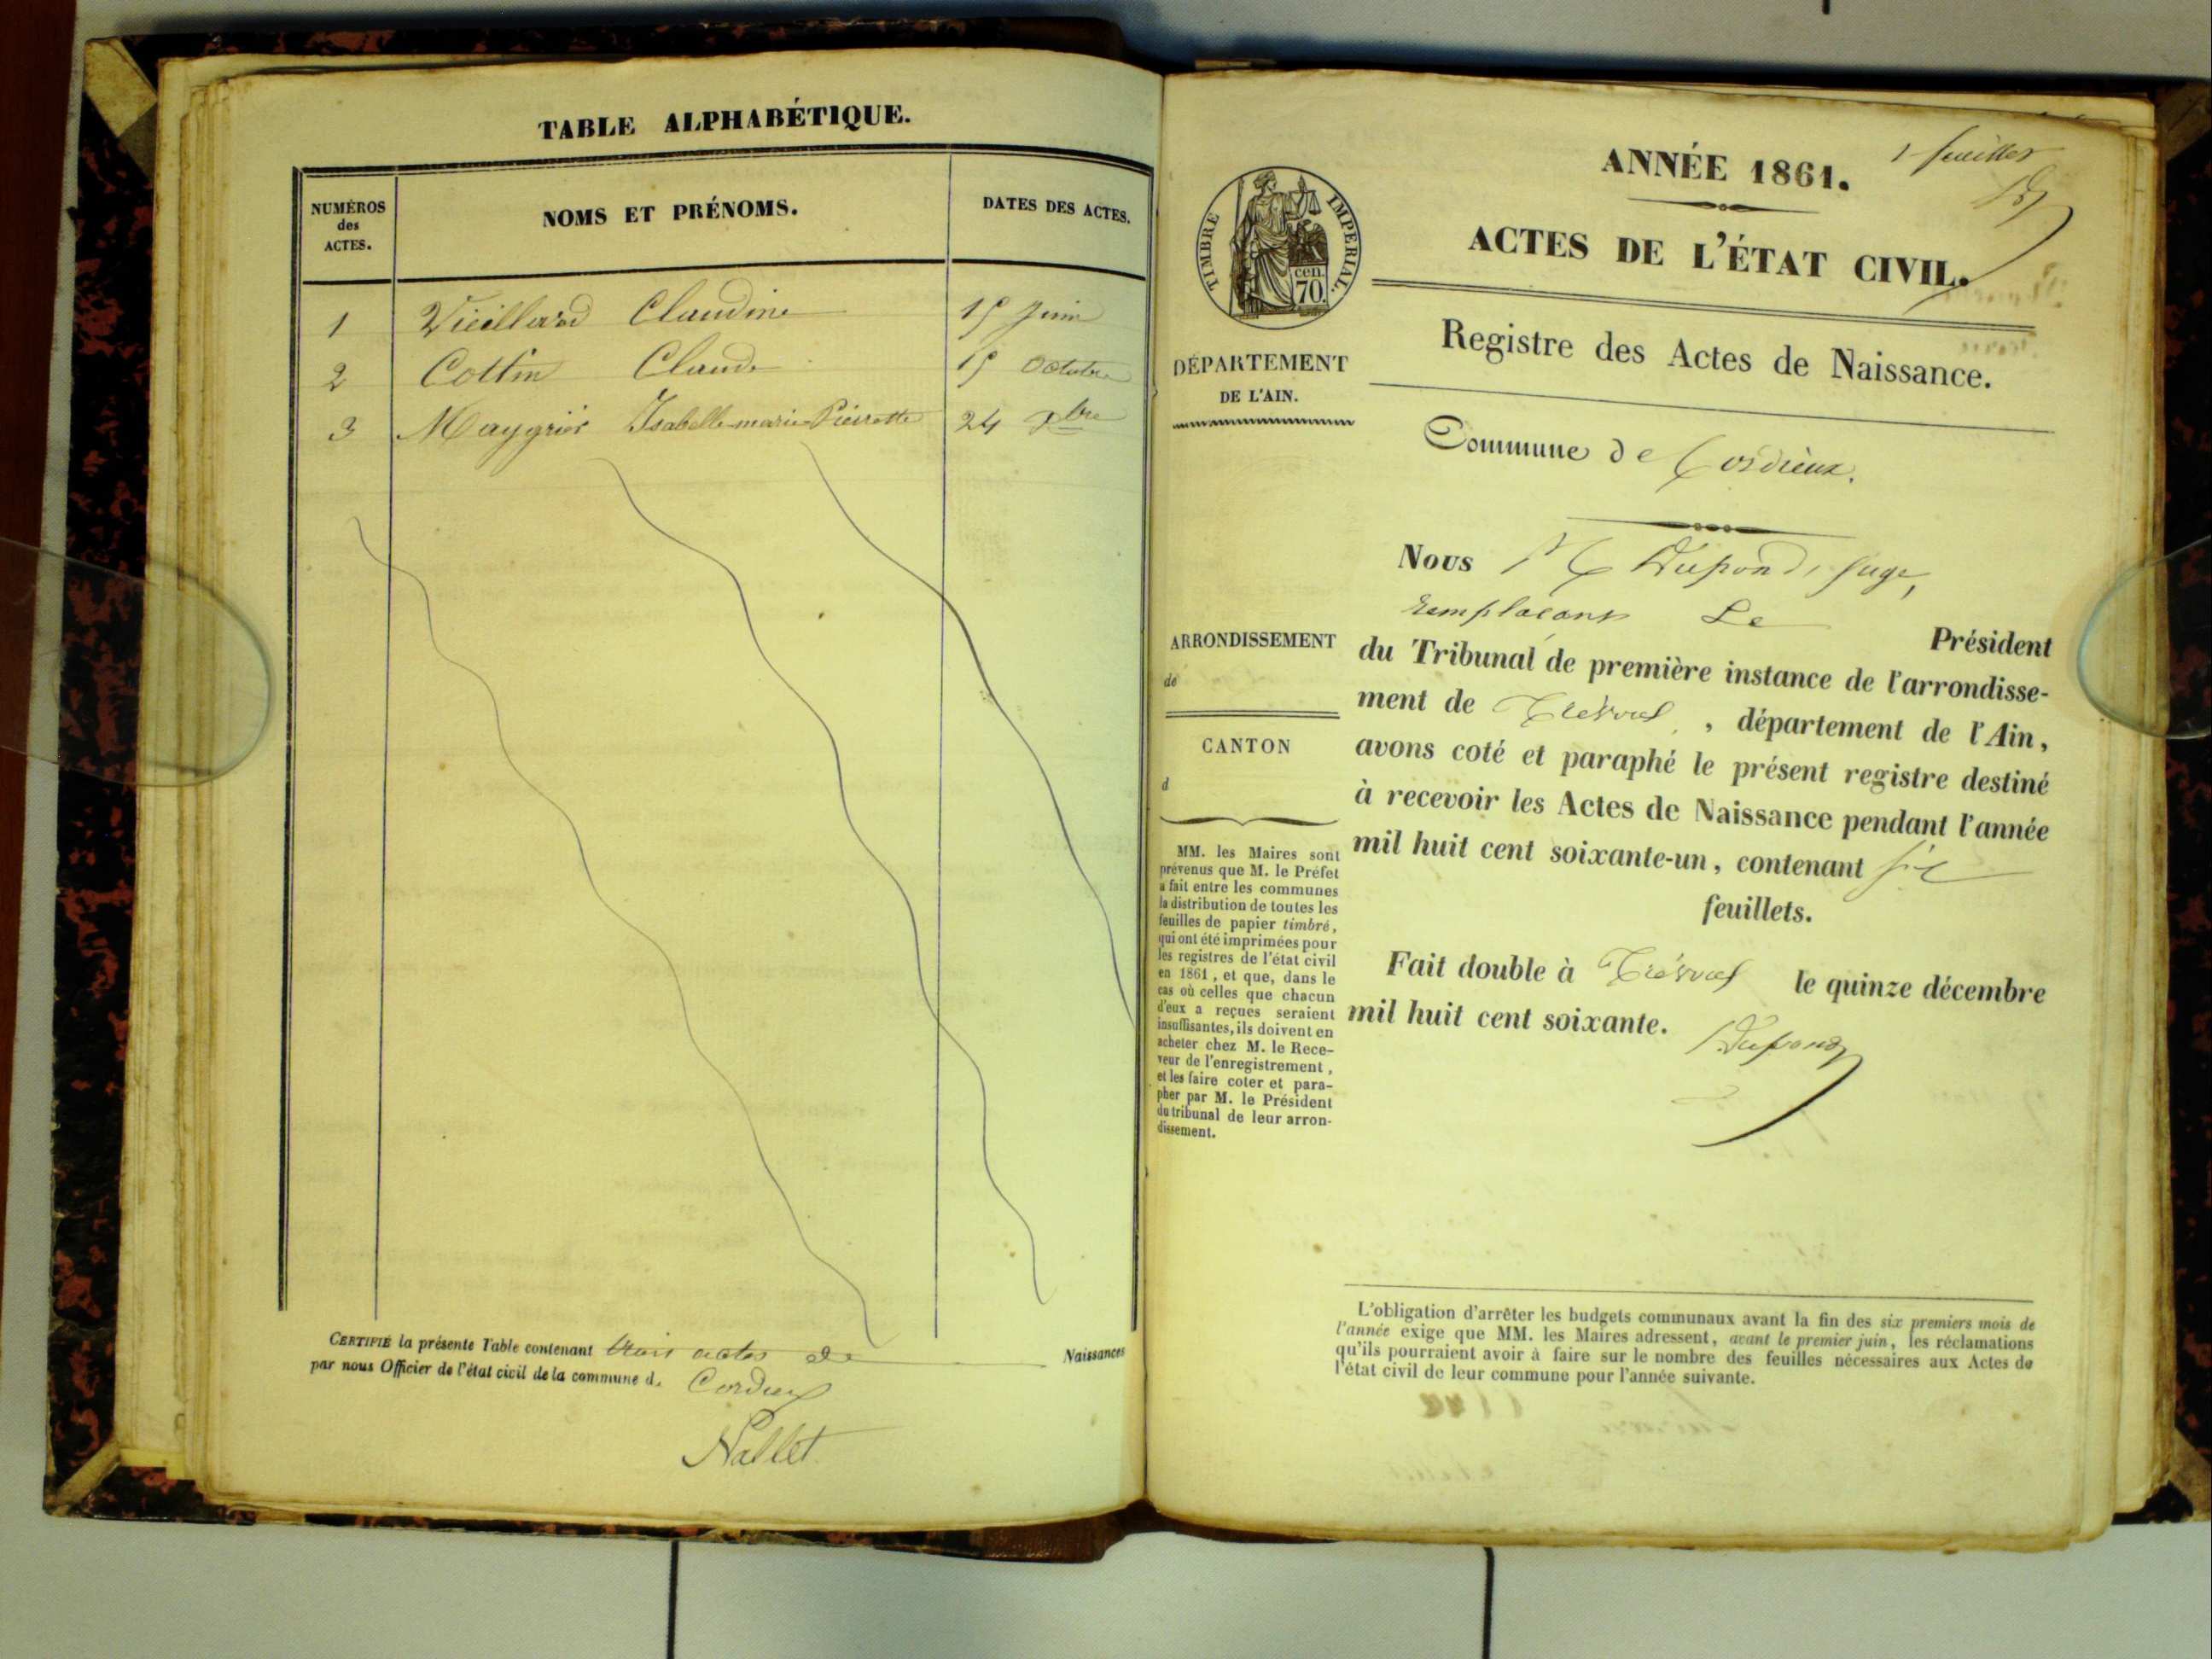 TABLE ALPHABÉTIQUE.
NUMÉROS des ACTES.
NOMS ET PRÉNOMS.
DATES DES ACTES.
1 Vieillard Claudine 15 Juin
2 Cottin Claude 15 Octobre
3 Maygrier Isabelle-marie-Pierrette 24 Xbre
CERTIFIÉ la présente Table contenant trois actes de Naissances
par nous Officier de l'état civil de la commune de Cordieux
Nallet
1er feuillet
ANNÉE 1861.
ACTES DE L'ÉTAT CIVIL.
TIMBRE IMPERIAL.
cen. 70.
Registre des Actes de Naissance.
DÉPARTEMENT
DE L'AIN.
Commune de Cordieux.
Nous Dupond, juge,
remplaçant Le Président
du Tribunal de première instance de l'arrondisse-
ment de Trévoux, département de l'Ain,
avons coté et paraphé le présent registre destiné
à recevoir les Actes de Naissance pendant l'année
mil huit cent soixante-un, contenant six
feuillets.
Fait double à Trévoux le quinze décembre
mil huit cent soixante.
Dupond
ARRONDISSEMENT
de
CANTON
d
MM. les Maires sont
prévenus que M. le Préfet
a fait entre les communes
la distribution de toutes les
feuilles de papier timbré,
qui ont été imprimées pour
les registres de l'état civil
en 1861, et que, dans le
cas où celles que chacun
d'eux a reçues seraient
insuffisantes, ils doivent en
acheter chez M. le Rece-
veur de l'enregistrement,
et les faire coter et para-
pher par M. le Président
du tribunal de leur arron-
dissement.
L'obligation d'arrêter les budgets communaux avant la fin des six premiers mois de
l'année exige que MM. les Maires adressent, avant le premier juin, les réclamations
qu'ils pourraient avoir à faire sur le nombre des feuilles nécessaires aux Actes de
l'état civil de leur commune pour l'année suivante.